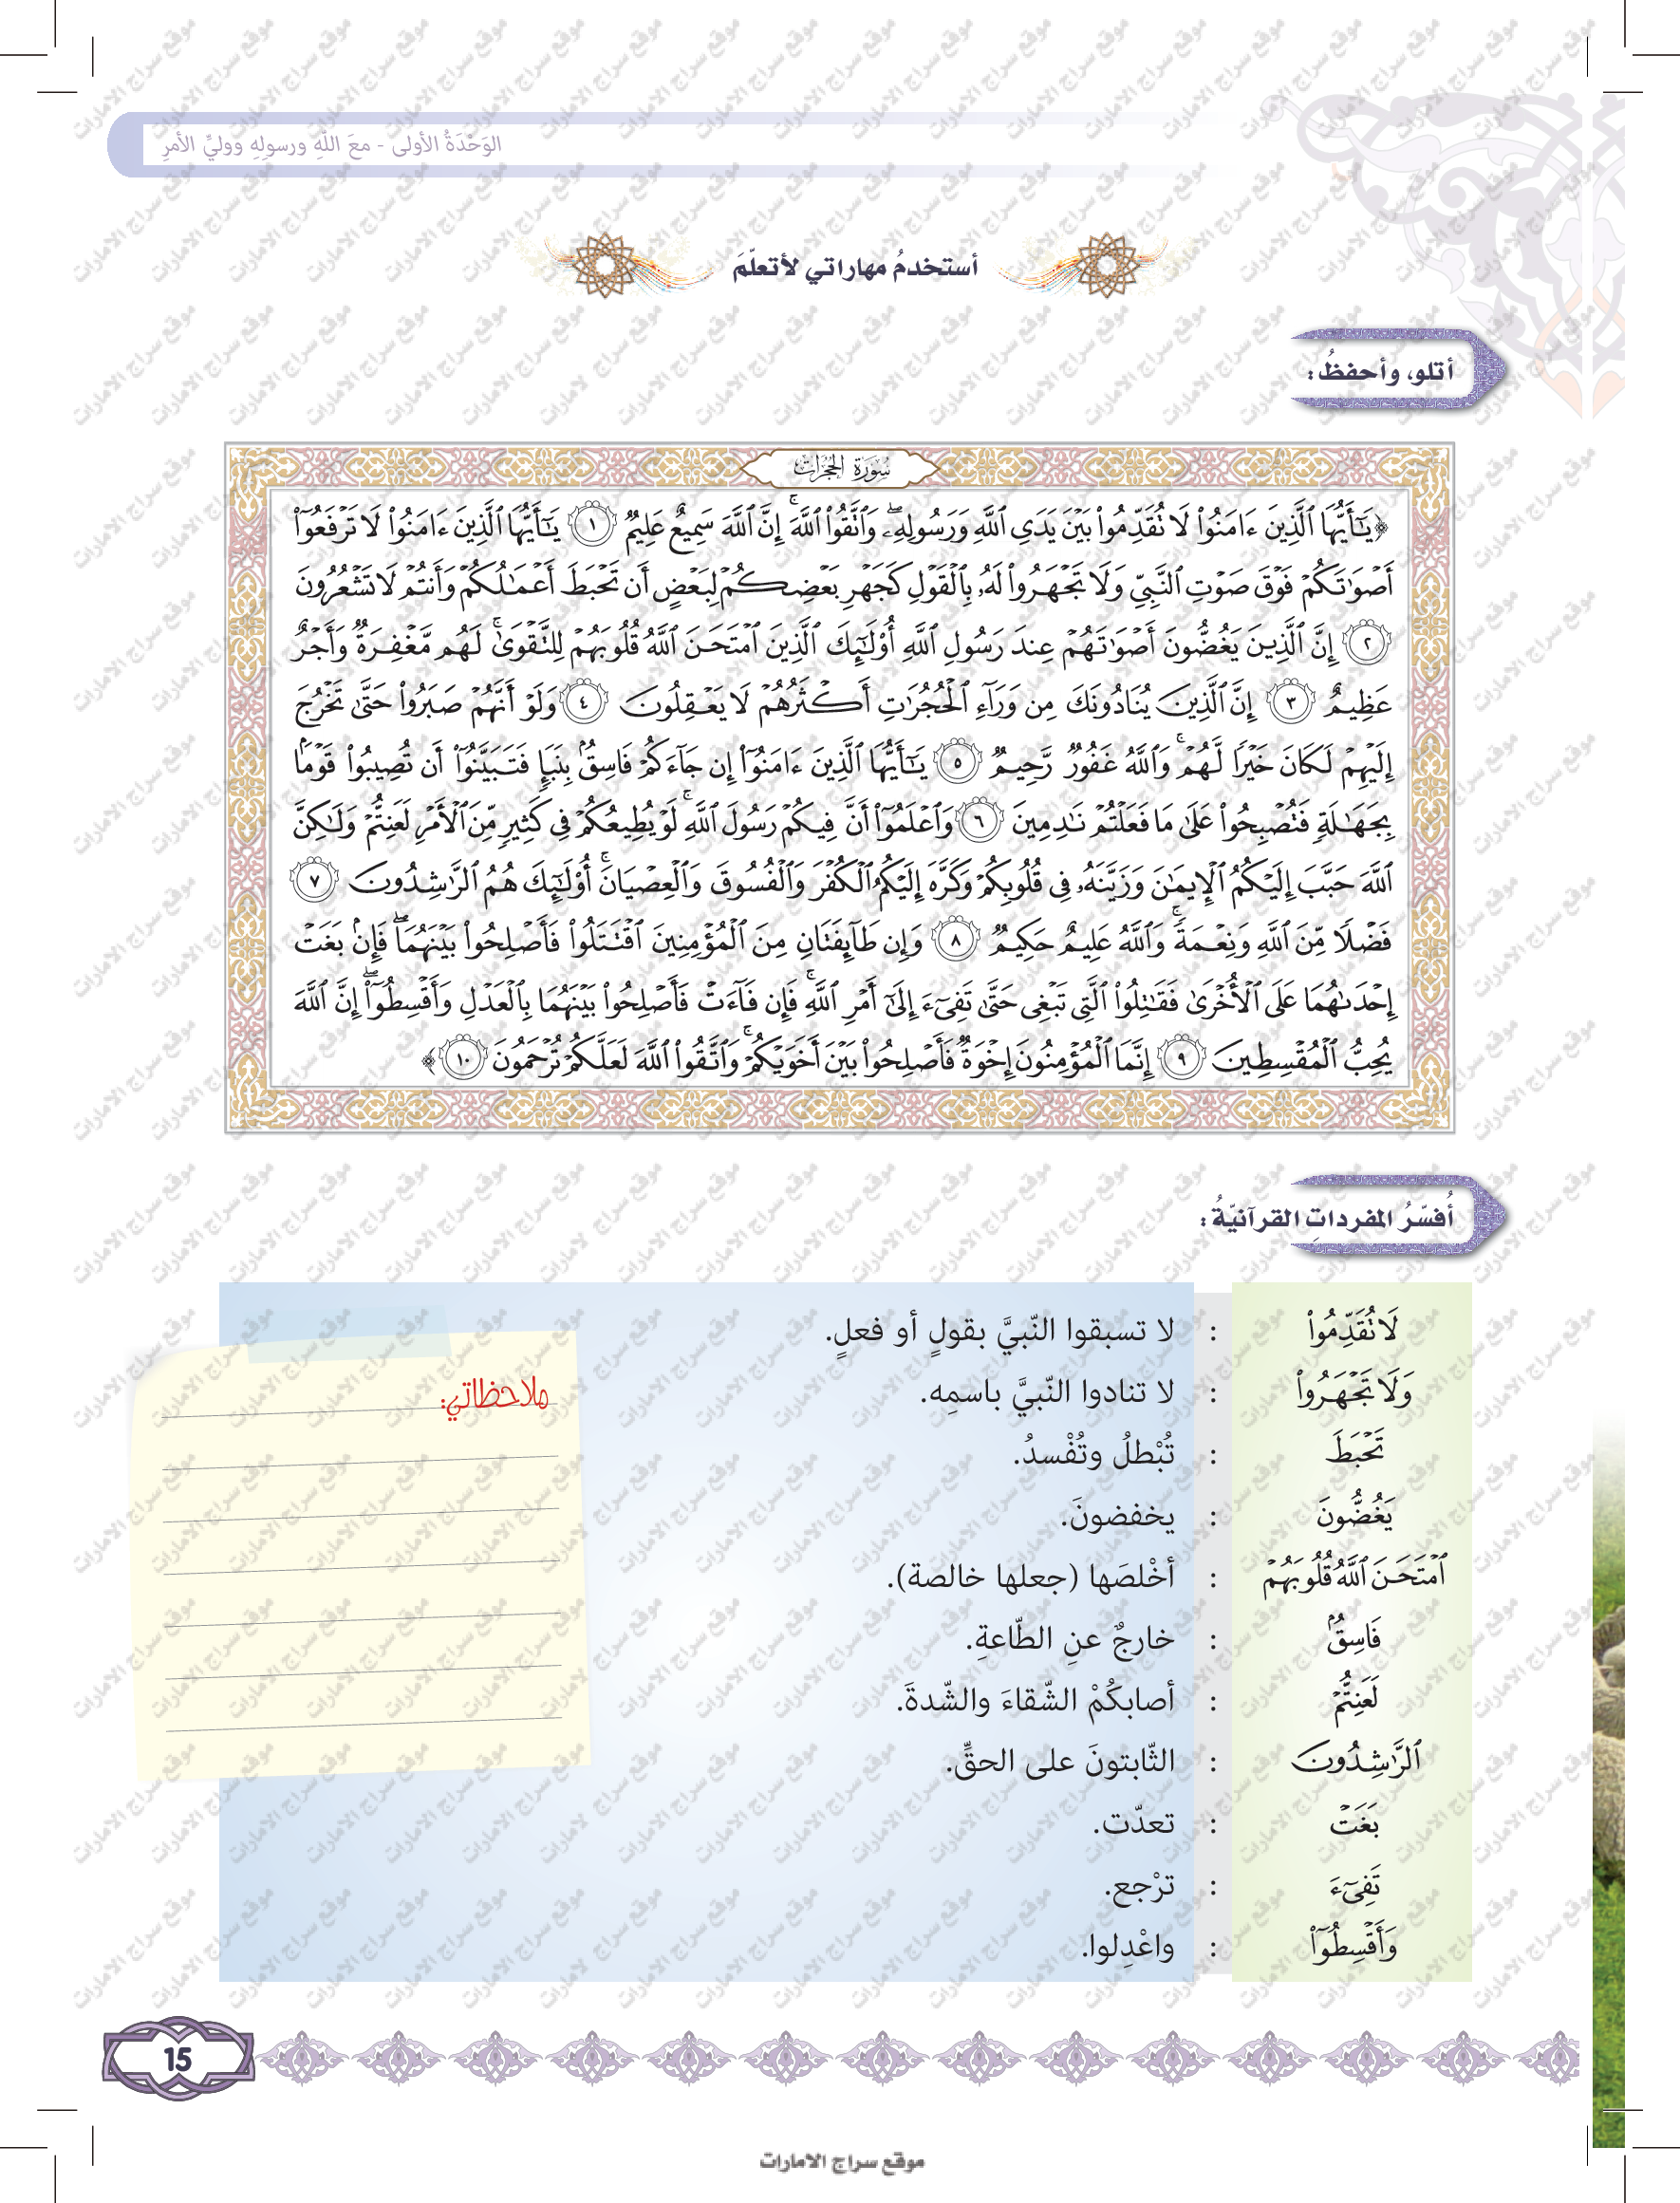 الوَحْدَةُ الأولى - معَ اللّهِ ورسولِهِ ووليِّ الأمرِ
أستخدمُ مهاراتي لأتعلّمَ
أتلو، وأحفظُ:
سُورَةُ الحُجُرَات
﴿يَٰٓأَيُّهَا ٱلَّذِينَ ءَامَنُوا۟ لَا تُقَدِّمُوا۟ بَيْنَ يَدَىِ ٱللَّهِ وَرَسُولِهِۦ ۖ وَٱتَّقُوا۟ ٱللَّهَ ۚ إِنَّ ٱللَّهَ سَمِيعٌ عَلِيمٌ ١ يَٰٓأَيُّهَا ٱلَّذِينَ ءَامَنُوا۟ لَا تَرْفَعُوٓا۟
أَصْوَٰتَكُمْ فَوْقَ صَوْتِ ٱلنَّبِىِّ وَلَا تَجْهَرُوا۟ لَهُۥ بِٱلْقَوْلِ كَجَهْرِ بَعْضِكُمْ لِبَعْضٍ أَن تَحْبَطَ أَعْمَٰلُكُمْ وَأَنتُمْ لَا تَشْعُرُونَ
٢ إِنَّ ٱلَّذِينَ يَغُضُّونَ أَصْوَٰتَهُمْ عِندَ رَسُولِ ٱللَّهِ أُو۟لَٰٓئِكَ ٱلَّذِينَ ٱمْتَحَنَ ٱللَّهُ قُلُوبَهُمْ لِلتَّقْوَىٰ ۚ لَهُم مَّغْفِرَةٌ وَأَجْرٌ
عَظِيمٌ ٣ إِنَّ ٱلَّذِينَ يُنَادُونَكَ مِن وَرَآءِ ٱلْحُجُرَٰتِ أَكْثَرُهُمْ لَا يَعْقِلُونَ ٤ وَلَوْ أَنَّهُمْ صَبَرُوا۟ حَتَّىٰ تَخْرُجَ
إِلَيْهِمْ لَكَانَ خَيْرًا لَّهُمْ ۚ وَٱللَّهُ غَفُورٌ رَّحِيمٌ ٥ يَٰٓأَيُّهَا ٱلَّذِينَ ءَامَنُوٓا۟ إِن جَآءَكُمْ فَاسِقٌۢ بِنَبَإٍ فَتَبَيَّنُوٓا۟ أَن تُصِيبُوا۟ قَوْمًۢا
بِجَهَٰلَةٍ فَتُصْبِحُوا۟ عَلَىٰ مَا فَعَلْتُمْ نَٰدِمِينَ ٦ وَٱعْلَمُوٓا۟ أَنَّ فِيكُمْ رَسُولَ ٱللَّهِ ۚ لَوْ يُطِيعُكُمْ فِى كَثِيرٍ مِّنَ ٱلْأَمْرِ لَعَنِتُّمْ وَلَٰكِنَّ
ٱللَّهَ حَبَّبَ إِلَيْكُمُ ٱلْإِيمَٰنَ وَزَيَّنَهُۥ فِى قُلُوبِكُمْ وَكَرَّهَ إِلَيْكُمُ ٱلْكُفْرَ وَٱلْفُسُوقَ وَٱلْعِصْيَانَ ۚ أُو۟لَٰٓئِكَ هُمُ ٱلرَّٰشِدُونَ ٧
فَضْلًا مِّنَ ٱللَّهِ وَنِعْمَةً ۚ وَٱللَّهُ عَلِيمٌ حَكِيمٌ ٨ وَإِن طَآئِفَتَانِ مِنَ ٱلْمُؤْمِنِينَ ٱقْتَتَلُوا۟ فَأَصْلِحُوا۟ بَيْنَهُمَا ۖ فَإِنۢ بَغَتْ
إِحْدَىٰهُمَا عَلَى ٱلْأُخْرَىٰ فَقَٰتِلُوا۟ ٱلَّتِى تَبْغِى حَتَّىٰ تَفِىٓءَ إِلَىٰٓ أَمْرِ ٱللَّهِ ۚ فَإِن فَآءَتْ فَأَصْلِحُوا۟ بَيْنَهُمَا بِٱلْعَدْلِ وَأَقْسِطُوٓا۟ ۖ إِنَّ ٱللَّهَ
يُحِبُّ ٱلْمُقْسِطِينَ ٩ إِنَّمَا ٱلْمُؤْمِنُونَ إِخْوَةٌ فَأَصْلِحُوا۟ بَيْنَ أَخَوَيْكُمْ ۚ وَٱتَّقُوا۟ ٱللَّهَ لَعَلَّكُمْ تُرْحَمُونَ ١٠﴾
أُفسّرُ المفرداتِ القرآنيّةَ:
لَا تُقَدِّمُوا۟ : لا تسبقوا النّبيَّ بقولٍ أو فعلٍ.
وَلَا تَجْهَرُوا۟ : لا تنادوا النّبيَّ باسمِه.
تَحْبَطَ : تُبْطلُ وتُفْسدُ.
يَغُضُّونَ : يخفضونَ.
ٱمْتَحَنَ ٱللَّهُ قُلُوبَهُمْ : أخْلصَها (جعلها خالصة).
فَاسِقٌۢ : خارجٌ عنِ الطّاعةِ.
لَعَنِتُّمْ : أصابكُمْ الشّقاءَ والشّدةَ.
ٱلرَّٰشِدُونَ : الثّابتونَ على الحقِّ.
بَغَتْ : تعدّت.
تَفِىٓءَ : ترْجع.
وَأَقْسِطُوٓا۟ : واعْدِلوا.
ملاحظاتي:
15
موقع سراج الامارات